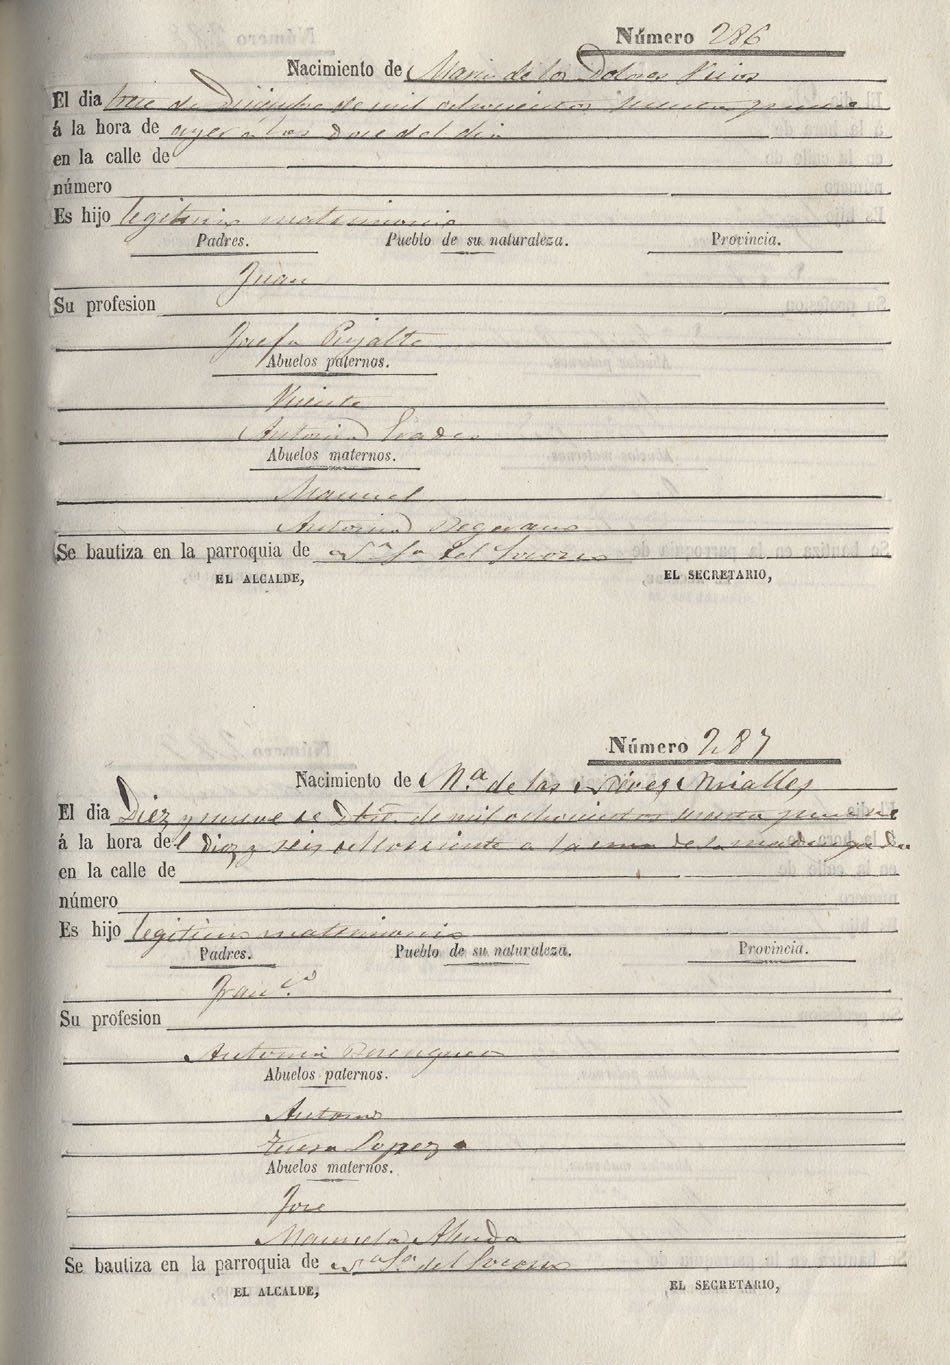 Número 286
Nacimiento de Maria de los Dolores Rios
El dia trece de Diciembre de mil ochocientos
á la hora de ayer a las doce del dia
en la calle de
número
Es hijo legitimo matrimonio
Padres. Pueblo de su naturaleza. Provincia.
Juan
Su profesion
Josefa Pujalte
Abuelos paternos.
Vicente
Antonia
Abuelos maternos.
Manuel
Antonia
Se bautiza en la parroquia de Nª Sª del Socorro
EL ALCALDE, EL SECRETARIO,
Número 287
Nacimiento de Mª de las Nieves Miralles
El dia Diez y nueve de Dbre. de mil ochocientos
á la hora del Diez y seis del corriente a la una de la madrugada
en la calle de
número
Es hijo legitimo matrimonio
Padres. Pueblo de su naturaleza. Provincia.
Franco.
Su profesion
Antonia Berenguer
Abuelos paternos.
Antonio
Teresa Lopez
Abuelos maternos.
José
Manuela
Se bautiza en la parroquia de Nª Sª del Socorro
EL ALCALDE, EL SECRETARIO,